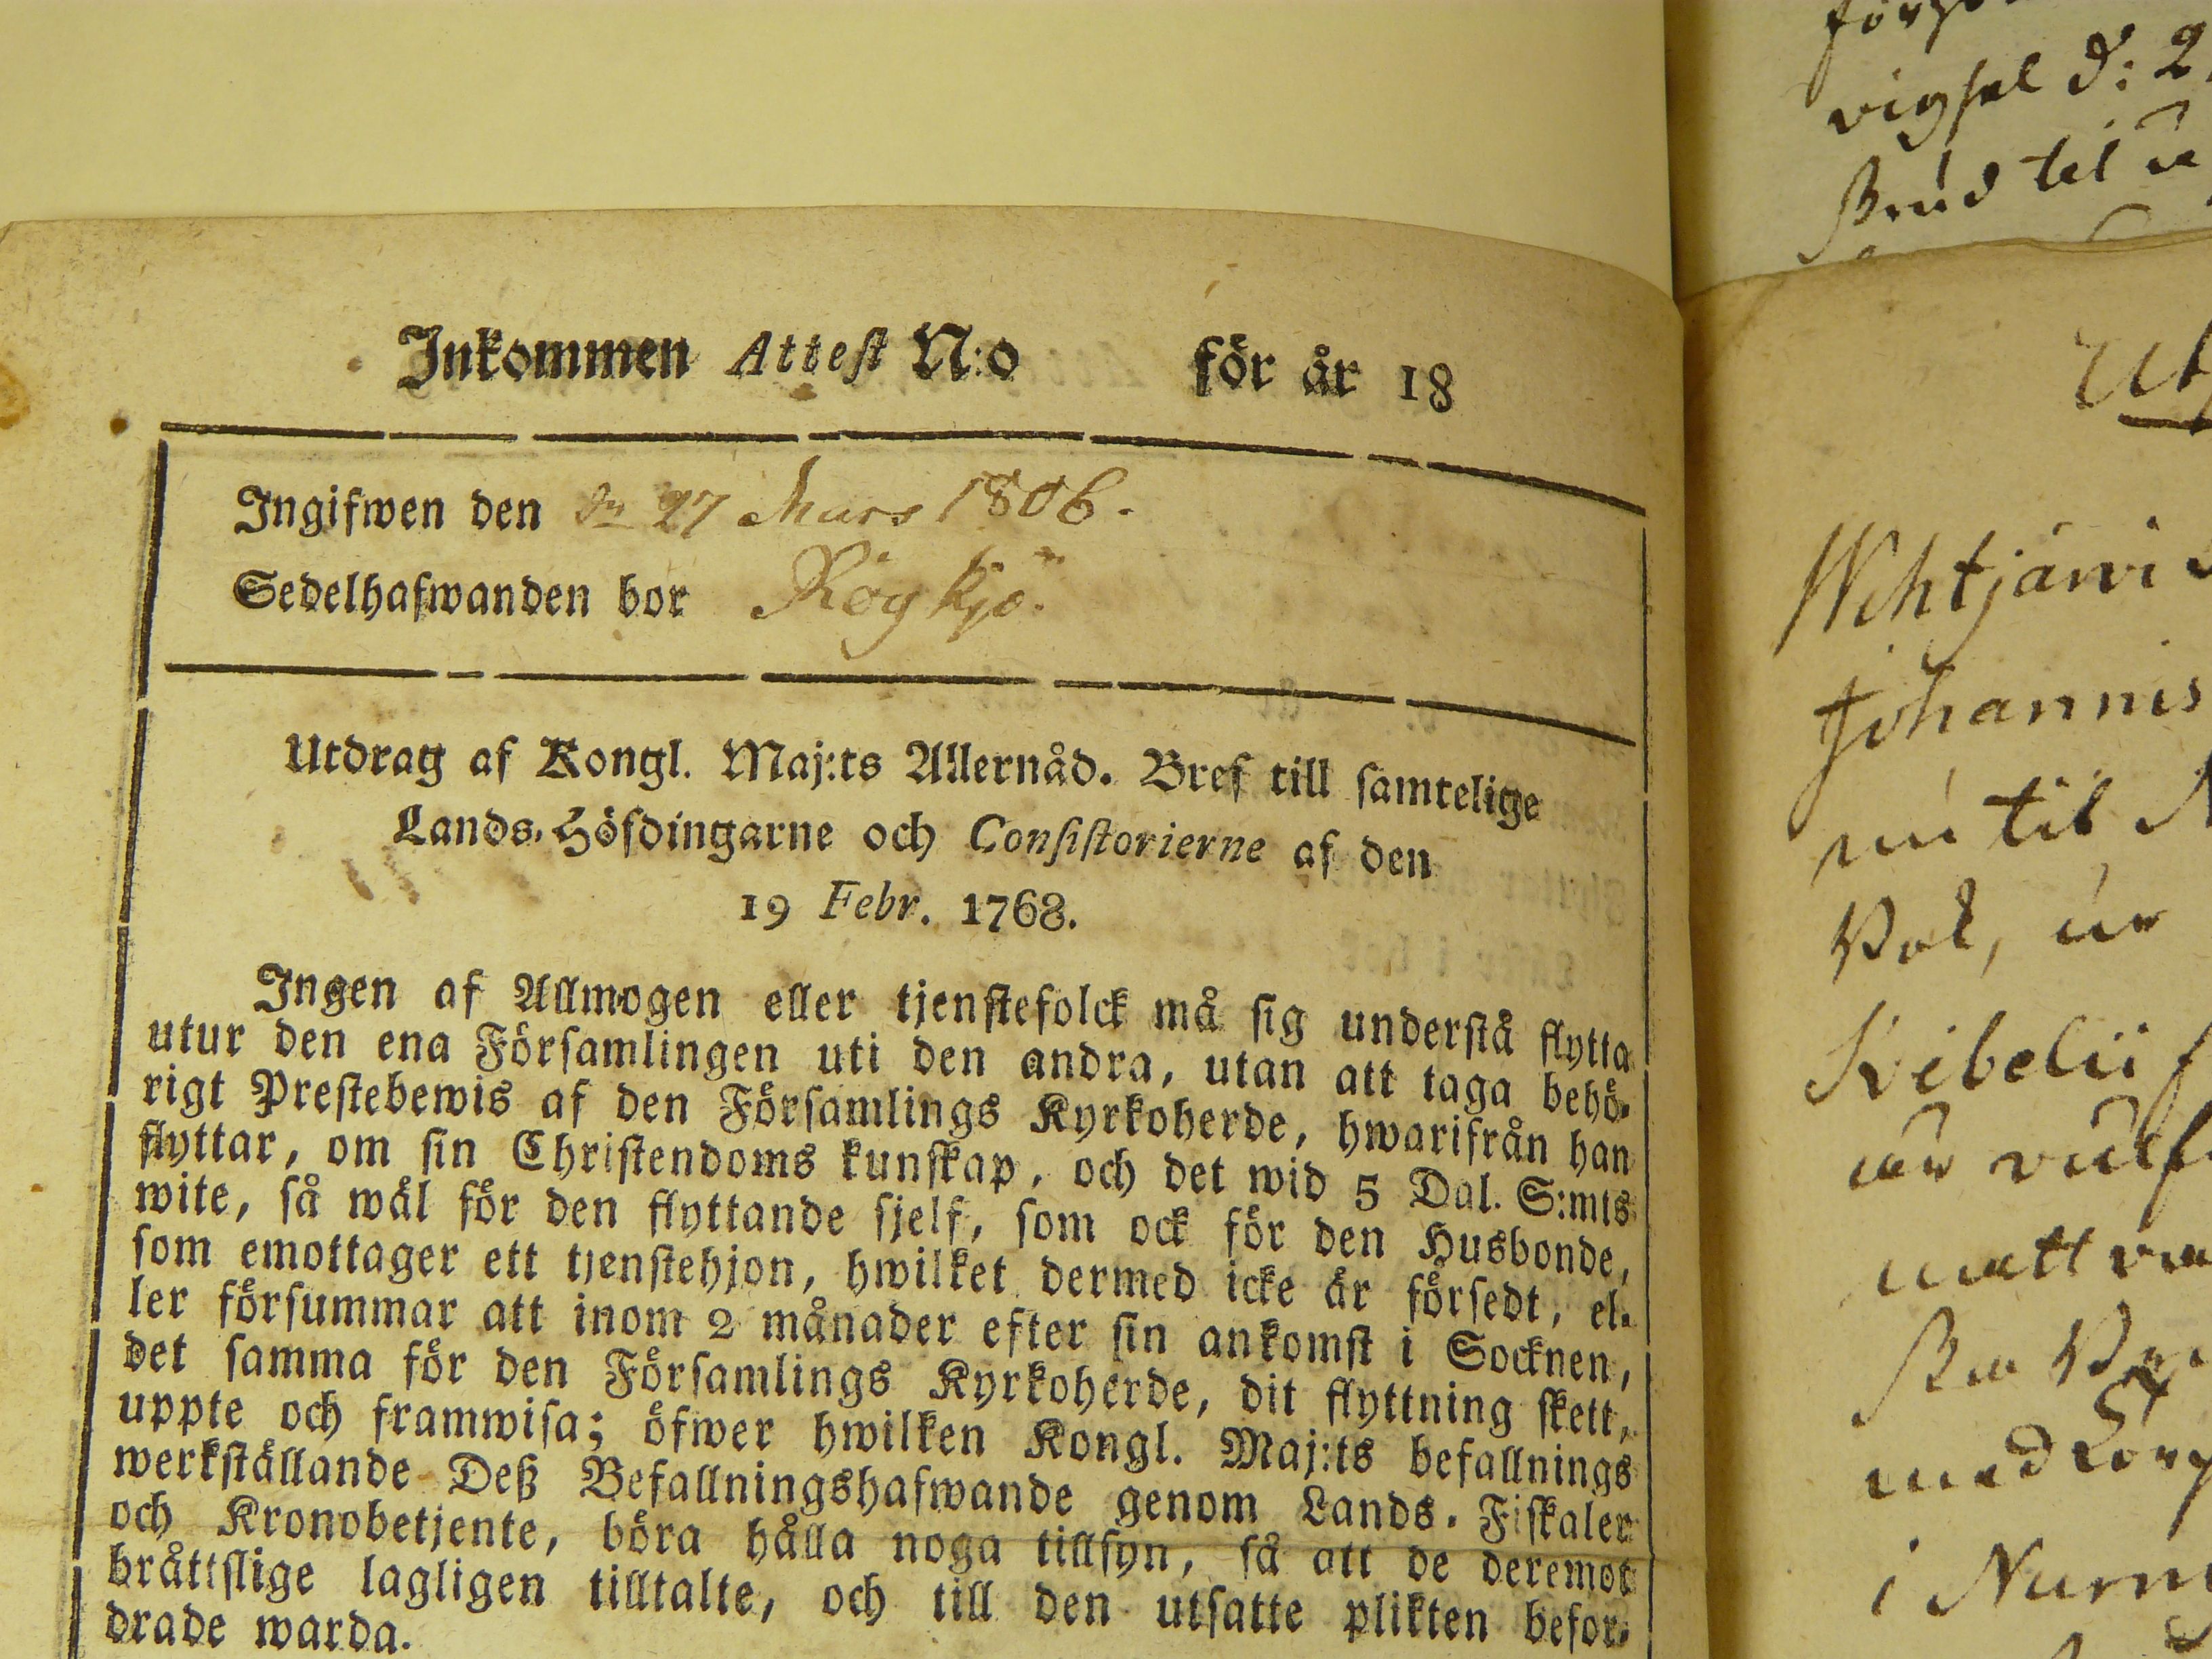 Inkommen Attest N:o för år 18
Ingifwen den dn 27 Mars 1806.
Sedelhafwanden bor Rögkjö.
Utdrag af Kongl. Maj:ts Allernåd. Bref till samtelige
Lands-Höfdingarne och Consistorierne af den
19 Febr. 1768.
Ingen af Allmogen eller tjenstefolck må sig understå flytta
utur den ena Församlingen uti den andra, utan att taga behö-
rigt Prestebewis af den Församlings Kyrkoherde, hwarifrån han
flyttar, om sin Christendoms kunskap, och det wid 5 Dal. S:mts
wite, så wäl för den flyttande sjelf, som ock för den Husbonde,
som emottager ett tjenstehjon, hwilket dermed icke är försedt, el-
ler försummar att inom 2 månader efter sin ankomst i Socknen,
det samma för den Församlings Kyrkoherde, dit flyttning skett,
uppte och framwisa; öfwer hwilken Kongl. Maj:ts befallnings
werkställande Deß Befallningshafwande genom Lands-Fiskaler
och Kronobetjente, böra hålla noga tillsyn, så att de deremot
bråttslige lagligen tilltalte, och till den utsatte plikten befor-
drade warda.
vigsel d: 2
Brud til
Johannis
nu til
med